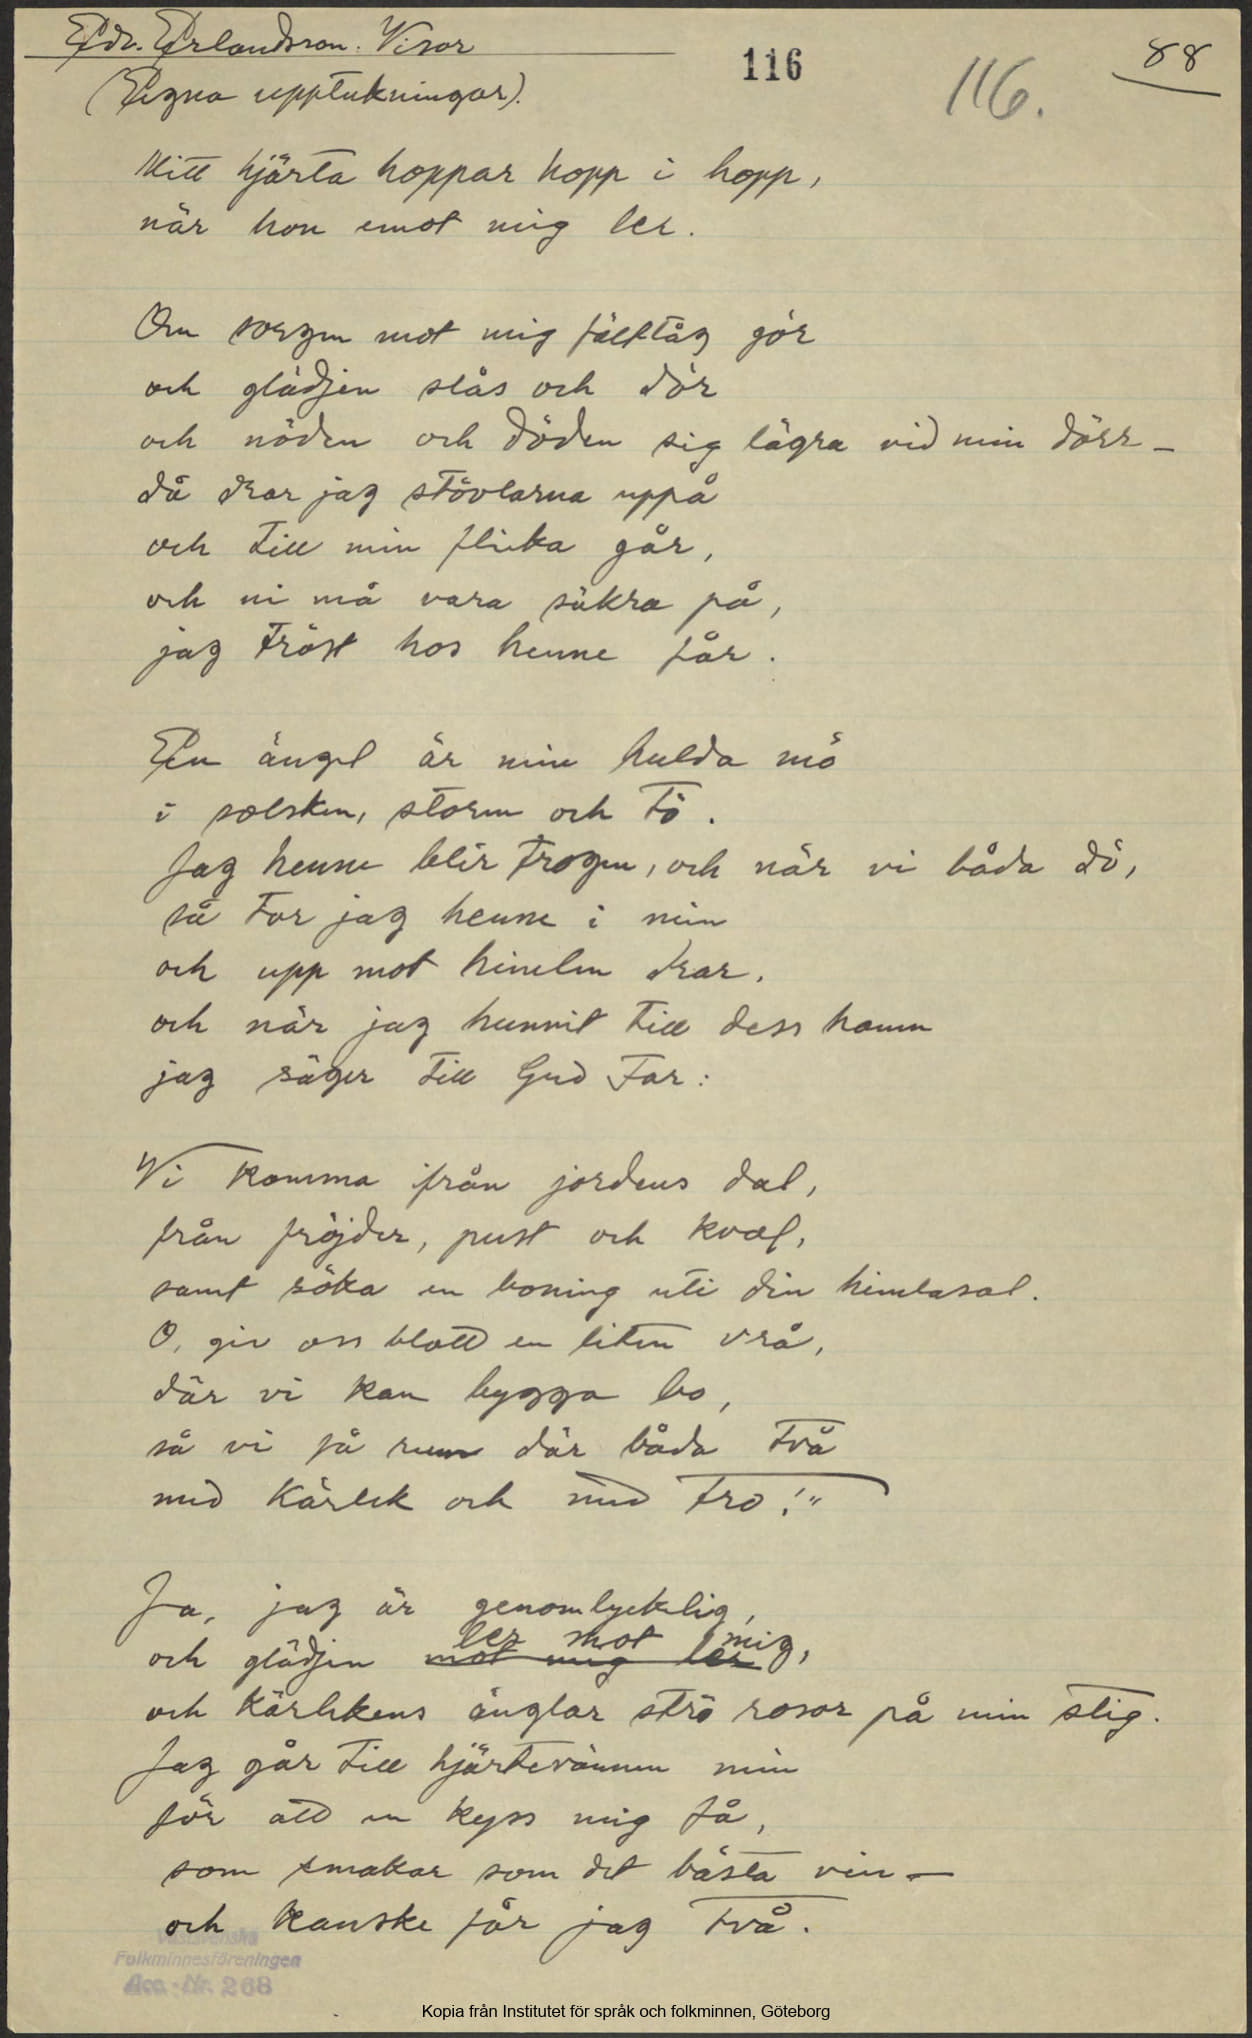 Edv. Erlandsson. Visor
(Egna uppteckningar).
116
116.
88
Mitt hjärta hoppar hopp i hopp,
när hon emot mig ler.
Om sorgen mot mig fälttåg gör
och glädjen slås och dör
och nöden och döden sig lägra vid min dörr –
då drar jag stövlarna uppå
och till min flicka går,
och ni må vara säkra på,
jag tröst hos henne får.
En ängel är min hulda mö
i solsken, storm och tö.
Jag henne blir trogen, och när vi båda dö,
så tar jag henne i min
och upp mot himlen drar.
och när jag hunnit till dess hamn
jag säger till Gud Far:
Vi komma från jordens dal,
från fröjder, pust och kval,
samt söka en boning uti din himlasal.
O, giv oss blott en liten vrå,
där vi kan bygga bo,
så vi få rum där båda två
med kärlek och med tro!"
Ja, jag är genomlycklig,
ler mot mig,
och glädjen mot mig ler
och kärlekens änglar strö rosor på min stig.
Jag går till hjärtevännen min
för att en kyss mig få,
som smakar som det bästa vin –
och kanske får jag två.
Västsvenska
Folkminnesföreningen
Acc.-Nr. 268
Kopia från Institutet för språk och folkminnen, Göteborg